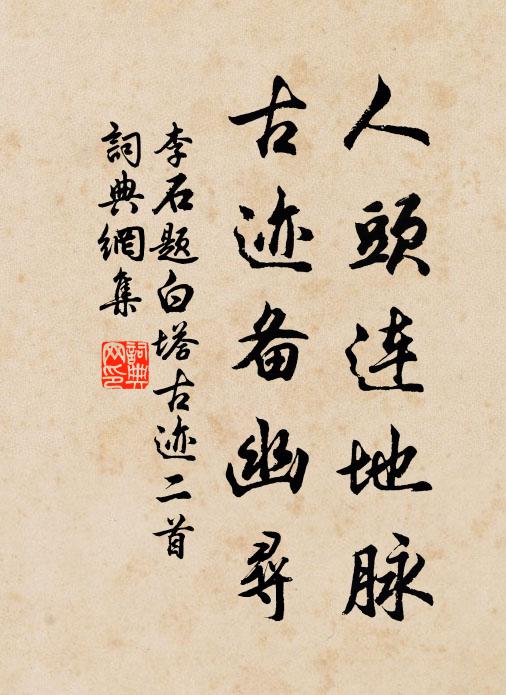 人頭连地脉
古迹备幽尋
李石题白塔古迹二首
詞典網集
詞典網印